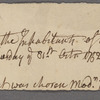 the Inhabitants. of
day of 31st Octo 175
t was chosen Mod.r